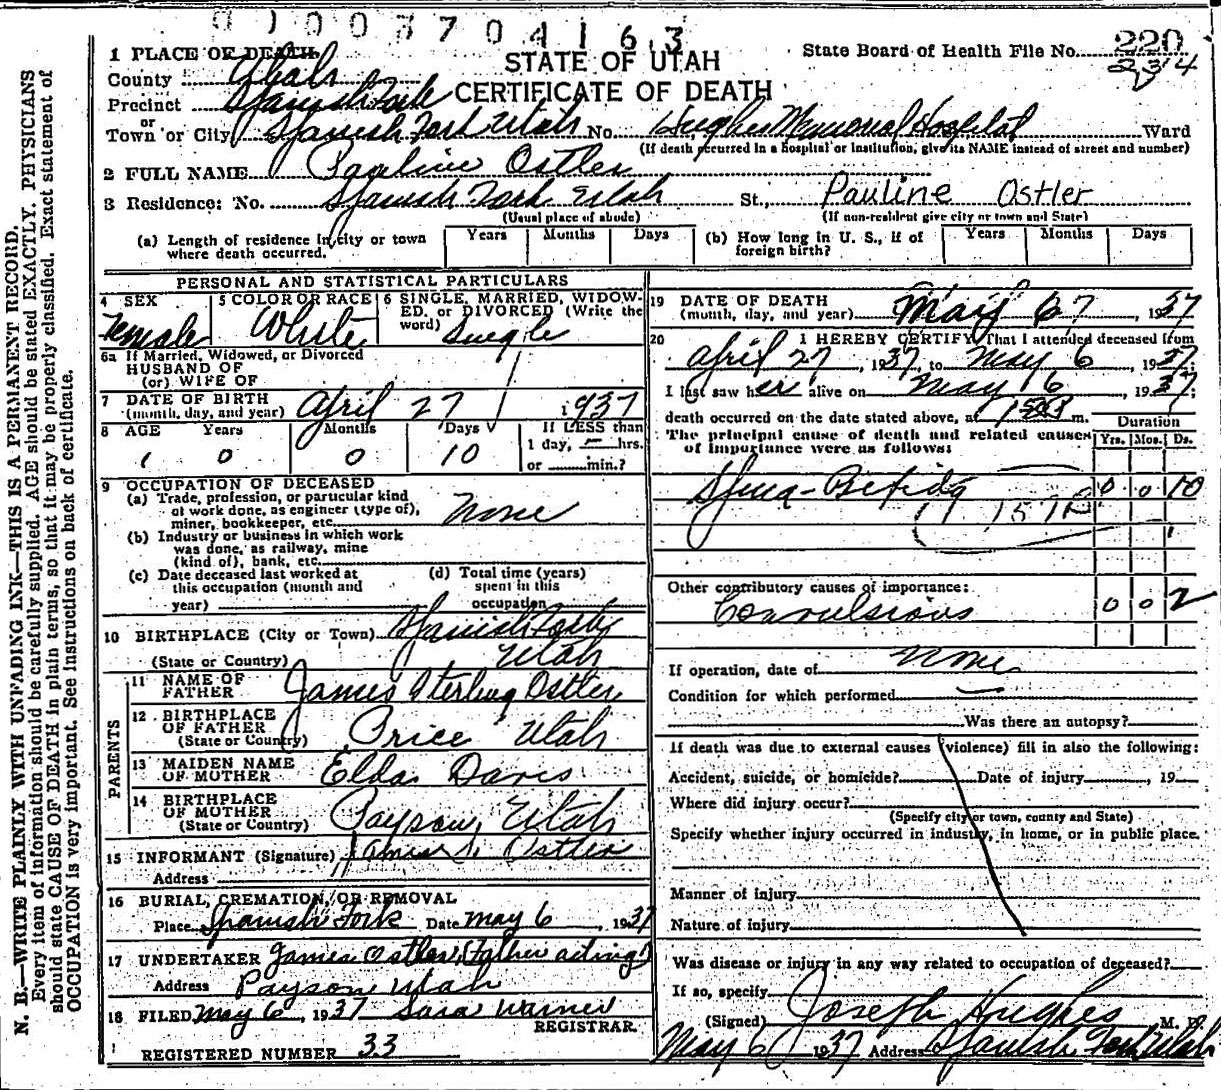 01007704163
1 PLACE OF DEATH
STATE OF UTAH
CERTIFICATE OF DEATH
State Board of Health File No. 220
234
County Utah
Precinct Spanish Fork
or
Town or City Spanish Fork Utah No. Hughes Memorial Hospital Ward
(If death occurred in a hospital or institution, give its NAME instead of street and number)
2 FULL NAME Pauline Ostler
3 Residence: No. Spanish Fork Utah St., Pauline Ostler
(Usual place of abode) (If non-resident give city or town and State)
(a) Length of residence in city or town where death occurred. Years Months Days
(b) How long in U. S., if of foreign birth? Years Months Days
PERSONAL AND STATISTICAL PARTICULARS
4 SEX Female
5 COLOR OR RACE White
6 SINGLE, MARRIED, WIDOWED, or DIVORCED (Write the word) Single
6a If Married, Widowed, or Divorced
HUSBAND OF
(or) WIFE OF
7 DATE OF BIRTH (month, day, and year) April 27 1937
8 AGE Years Months Days If LESS than
1 day, hrs.
or min.?
0 0 10
9 OCCUPATION OF DECEASED
(a) Trade, profession, or particular kind of work done, as engineer (type of), miner, bookkeeper, etc. None
(b) Industry or business in which work was done, as railway, mine (kind of), bank, etc.
(c) Date deceased last worked at this occupation (month and year)
(d) Total time (years) spent in this occupation
10 BIRTHPLACE (City or Town) Spanish Fork
(State or Country) Utah
PARENTS
11 NAME OF FATHER James Sterling Ostler
12 BIRTHPLACE OF FATHER (State or Country) Price Utah
13 MAIDEN NAME OF MOTHER Elda Davis
14 BIRTHPLACE OF MOTHER (State or Country) Payson, Utah
15 INFORMANT (Signature) James S. Ostler
Address
16 BURIAL, CREMATION, OR REMOVAL
Place Spanish Fork Date May 6, 1937
17 UNDERTAKER James Ostler (Father acting)
Address Payson Utah
18 FILED May 6, 1937 Sara Warner
REGISTRAR.
REGISTERED NUMBER 33
19 DATE OF DEATH (month, day, and year) May 6 7, 1937
20 I HEREBY CERTIFY, That I attended deceased from
April 27, 1937, to May 6, 1937;
I last saw her alive on May 6, 1937;
death occurred on the date stated above, at m.
The principal cause of death and related causes of importance were as follows:
Duration
Yrs. Mos. Ds.
Spina-Bifida 0 0 10
Other contributory causes of importance:
Convulsions 0 0 2
If operation, date of None
Condition for which performed
Was there an autopsy?
If death was due to external causes (violence) fill in also the following:
Accident, suicide, or homicide? Date of injury, 19
Where did injury occur?
(Specify city or town, county and State)
Specify whether injury occurred in industry, in home, or in public place.
Manner of injury
Nature of injury
Was disease or injury in any way related to occupation of deceased?
If so, specify
(Signed) Joseph Hughes M. D.
May 6 1937 Address Spanish Fork Utah
N. B.—WRITE PLAINLY WITH UNFADING INK—THIS IS A PERMANENT RECORD.
Every item of information should be carefully supplied. AGE should be stated EXACTLY. PHYSICIANS
should state CAUSE OF DEATH in plain terms, so that it may be properly classified. Exact statement of
OCCUPATION is very important. See instructions on back of certificate.